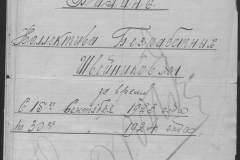 Баланс
Коллектива Безработных
Швейников №1
за время
с 15го Сентября 1923 года
по 30го " 1924 года.